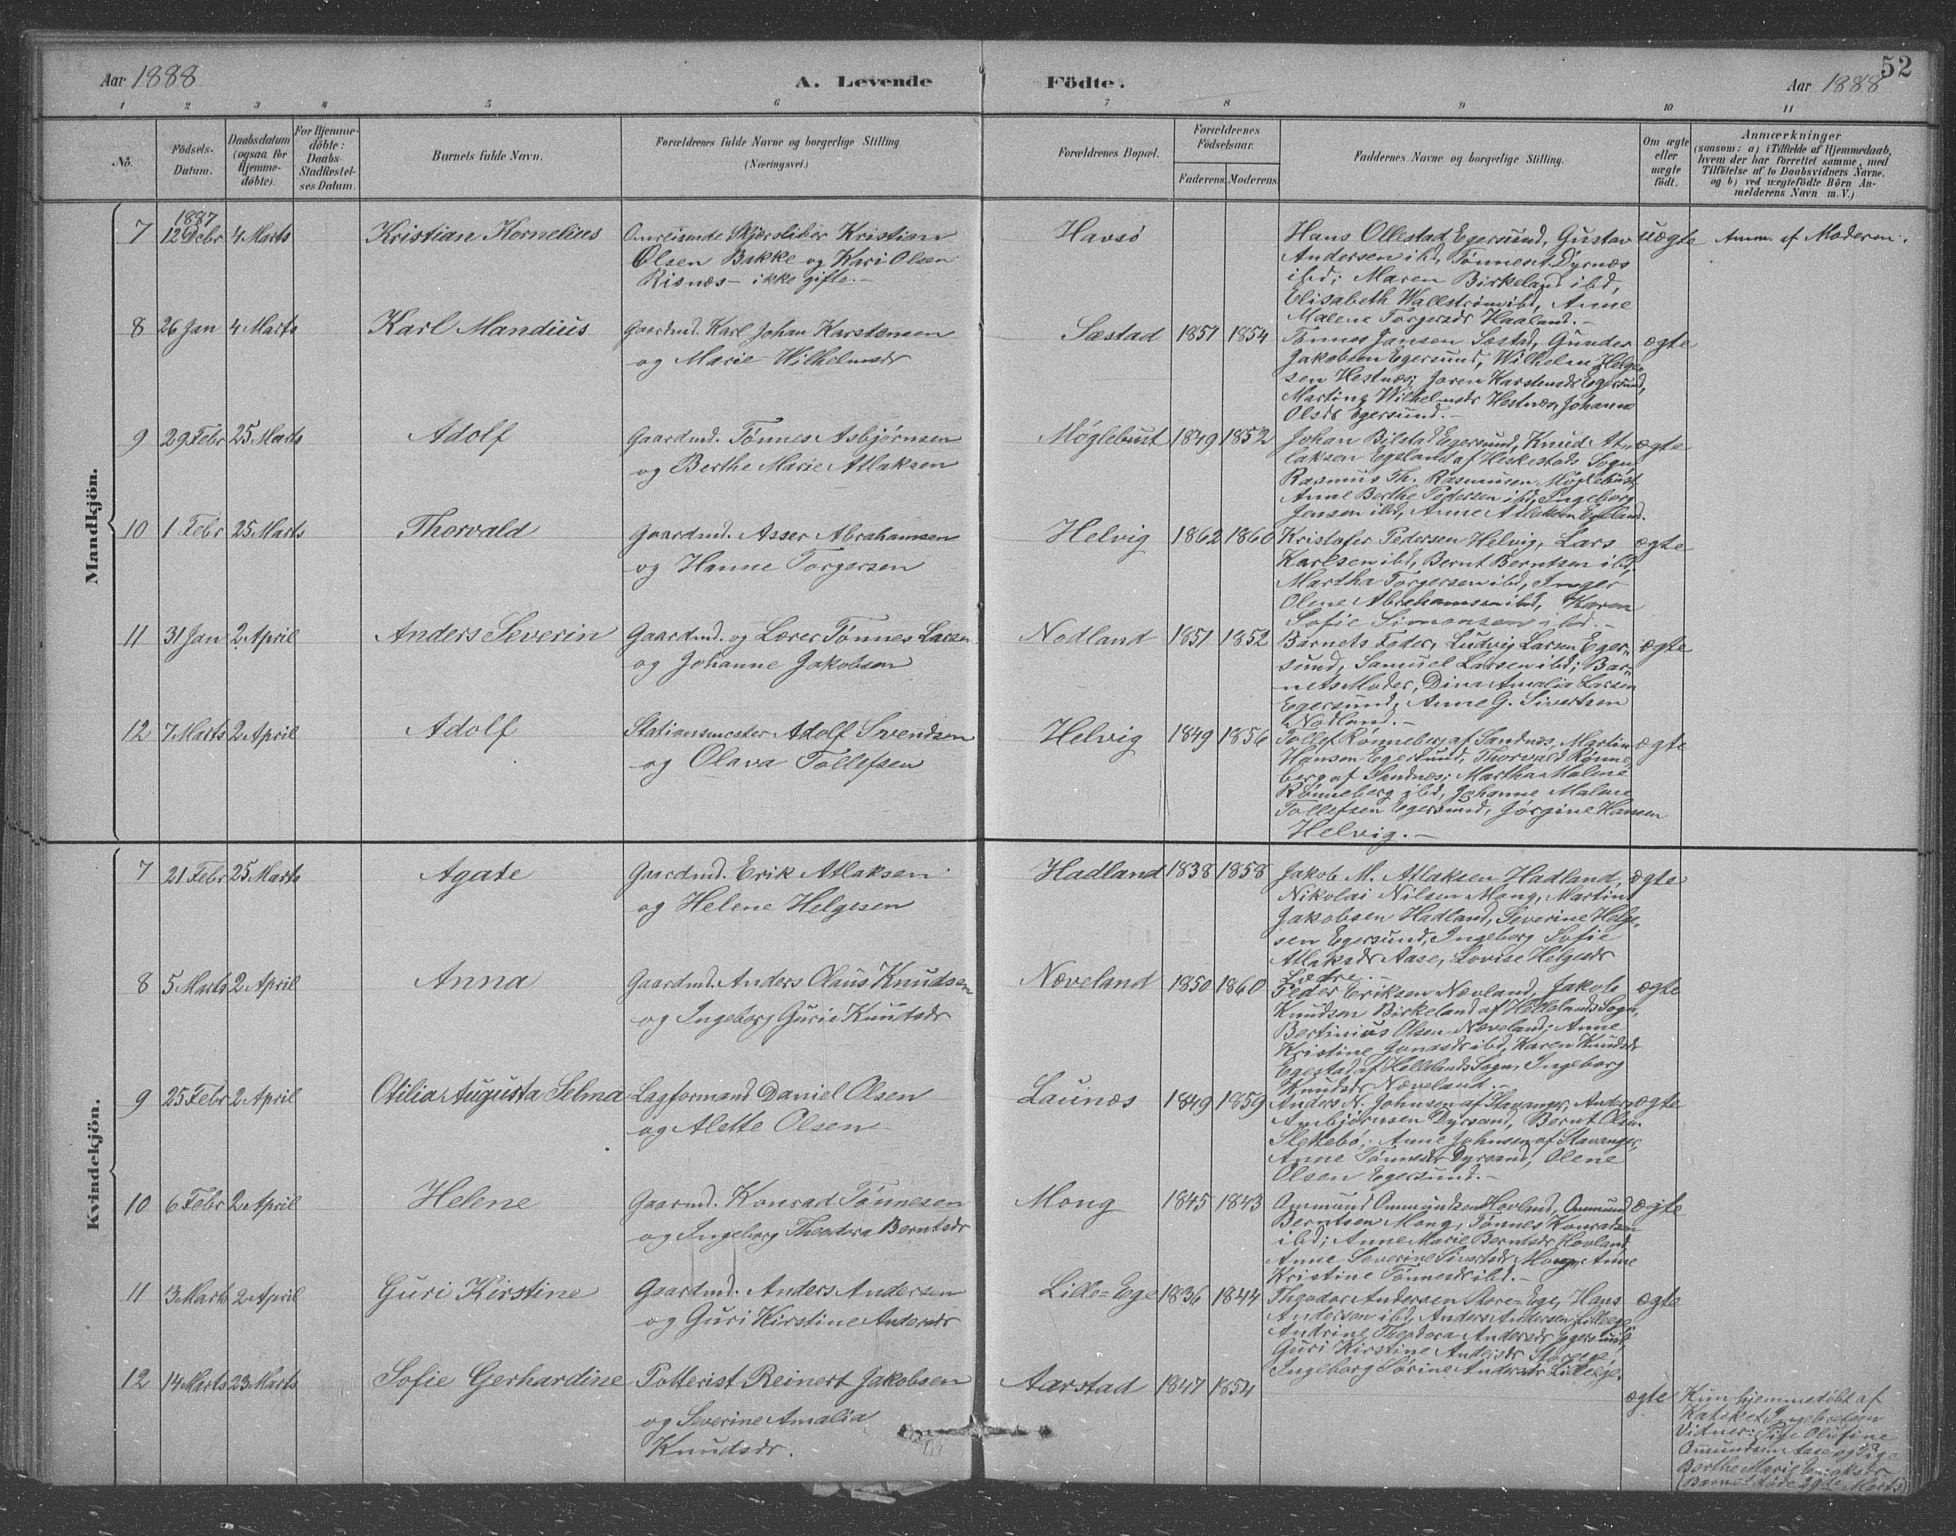 52
Aar 1888
A. Levende Födte.
Aar 1888
1 2 3 4 5 6 7 8 9 10 11
No.
Födsels-
Datum.
Daabsdatum
(ogsaa for
Hjemme-
döbte).
For Hjemme-
döbte:
Daabs-
Stadfæstel-
ses Datum.
Barnets fulde Navn.
Forældrenes fulde Navne og borgerlige Stilling.
(Næringsvei.)
Forældrenes Bopæl.
Forældrenes
Födselsaar.
Faderens. Moderens.
Faddernes Navne og borgerlige Stilling.
Om ægte
eller
uægte
födt.
Anmærkninger
(saasom: a) i Tilfælde af Hjemmedaab,
hvem der har forrettet samme, med
Tilföielse af to Daabsvidners Navne,
og b) ved uægtefödte Börn An-
melderens Navn m. V.)
Mandkjön.
1887
7 12 Debr 4 Marts Kristian Kornelius Omreisende Skjærsliber Kristian
Olsen Bakke og Kari Olsen
Risnæs – ikke gifte. –
Havsø
Hans Ollestad Egersund, Gustav
Andersen ibd, Tønnes Dyrnæs
ibd; Maren Birkeland ibd,
Elisabeth Wallstrøm ibd, Anne
Malene Torgersdr Haaland. –
uægte Anm. af Moderen.
8 26 Jan 4 Marts Karl Mandius Gaardmd. Karl Johan Karstensen
og Marie Wilhelmsdr
Sæstad 1851 1854
Tønnes Jansen Sæstad, Gunder
Jakobsen Egersund, Wilhelm Helge-
sen Hestnæs; Joren Karstensdr Egersund,
Martine Wilhelmsdr Hestnæs, Johanne
Olsdr Egersund. –
ægte
9 29 Febr 25 Marts Adolf Gaardmd. Tønnes Asbjørnsen
og Berthe Marie Atlaksen
Møglebust 1849 1852
Johan Bilstad Egersund, Knud At-
laksen Egeland af Heskestads Sogn,
Rasmus Th. Rasmusen Møglebust,
Anne Berthe Pedersen ibd, Ingeborg
Jensen ibd, Anne Atlaksen Egeland.
ægte
10 1 Febr 25 Marts Thorvald Gaardmd. Asser Abrahamsen
og Hanne Torgersen
Helvig 1862 1860
Kristofer Pedersen Helvig, Lars
Karlsen ibd, Bernt Berntsen ibd,
Martha Torgersen ibd, Inger
Olene Abrahamsen ibd, Karen
Sofie Simonsen ibd. –
ægte
11 31 Jan 2 April Anders Severin Gaardmd. og Lærer Tønnes Larsen
og Johanne Jakobsen
Nodland 1851 1852
Barnets Fader, Ludvig Larsen Eger-
sund, Samuel Larsen ibd; Bar-
nets Moder, Dina Amalia Larsen
Egersund, Anne G. Sivertsen
Nodland. –
ægte
12 7 Marts 2 April Adolf Stationsmester Adolf Svendsen
og Olava Tollefsen
Helvig 1849 1856
Tollef Rønneberg af Sandnæs, Martin
Hansen Egersund, Thorvald Rønne-
berg af Sandnæs; Martha Malene
Rønneberg ibd, Johanne Malene
Tollefsen Egersund, Jørgine Hansen
Helvig. –
ægte
Kvindekjön.
7 21 Febr 25 Marts Agate Gaardmd. Erik Atlaksen
og Helene Helgesen
Hadland 1838 1858
Jakob M. Atlaksen Hadland,
Nikolai Nilsen Mong, Martin
Jakobsen Hadland, Severine Helge-
sen Egersund, Ingeborg Sofie
Atlaksdr Aase, Lovise Helgesdr
ægte
8 5 Marts 2 April Anna Gaardmd. Anders Olaus Knudsen
og Ingeborg Gurie Knudsdr
Næveland 1850 1860
Peder Eriksen Nævland, Jakob
Knudsen Birkeland af Hellelands Sogn,
Bertinius Olsen Næveland; Anne
Kristine Jonasdr ibd, Karen Knudsdr
Egestad af Hellelands Sogn, Ingeborg
Knudsdr Næveland. –
ægte
9 25 Febr 2 April Otilia Augusta Selma Lagformand Daniel Olsen
og Alette Olsen
Launæs 1849 1859
Anders N. Johnsen af Stavanger, Anders
Asbjørnsen Dyrsand, Bernt Olsen
Slettebø; Anne Johnsen af Stavanger,
Anne Tønnesdr Dyrsand, Olene
Olsen Egersund. –
ægte
10 6 Febr 2 April Helene Gaardmd. Konrad Tønnesen
og Ingeborg Theodora Berntsdr
Mong 1845 1843
Ommund Ommundsen Hovland, Ommund
Berntsen Mong, Tønnes Konradsen
ibd; Anne Marie Berntsdr Hovland
Anne Severine Sivertsdr Mong, Anne
Kristine Tønnesdr ibd. –
ægte
11 3 Marts 2 April Guri Kirstine Gaardmd. Anders Andersen
og Guri Kirstine Andersdr
Lille-Ege 1836 1844
Theodor Andersen Store-Ege, Hans
Andersen ibd, Anders Andersen Lilleege;
Andrine Theodora Andersdr Egersund,
Guri Kirstine Andersdr Storeege,
Ingeborg Sørine Andersdr Lilleege.
ægte
12 14 Marts 23 Marts Sofie Gerhardine Potterist Reinert Jakobsen
og Severine Amalia
Knudsdr.
Aarstad 1847 1854
ægte
Kun hjemmedøbt af
Kateket Ingebretsen
Vidner: Pige Olufine
Ommundsen Aase og Pige
Berthe Marie Eriksdr
(Barnet døde 29de Marts)